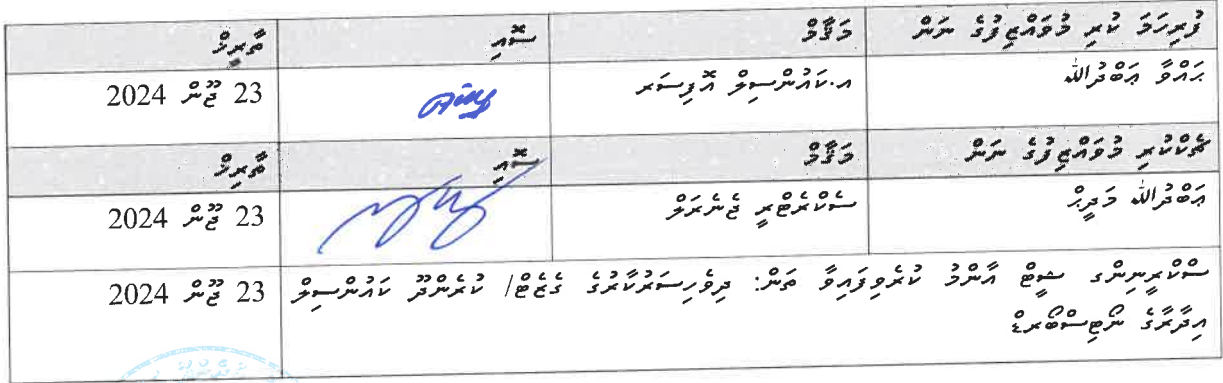 ފުރިހަމަ ކުރި މުވައްޒިފުގެ ނަން މަޤާމް ސޮއި ތާރީޚް
ޙައްވާ ޢަބްދުﷲ އ.ކައުންސިލް އޮފިސަރ 23 ޖޫން 2024
ޗެކްކުރި މުވައްޒިފުގެ ނަން މަޤާމް ސޮއި ތާރިޚް
ޢަބްދުﷲ މަދީޙް ސެކްރެޓްރީ ޖެނެރަލް 23 ޖޫން 2024
ސްކްރީނިންގ ޝީޓް އާންމު ކުރެވިފައިވާ ތަން: ދިވެހިސަރުކާރުގެ ގެޒެޓް/ ކުރެންދޫ ކައުންސިލް 23 ޖޫން 2024
އިދާރާގެ ނޯޓިސްބޯރޑް